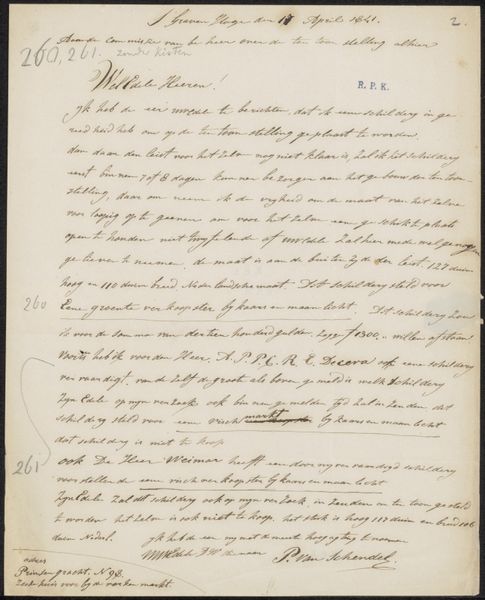 S Graven Hage den 11 April 1841.
2.
Aan de commissie van beheer over de ten toon stelling alhier
260, 261. zonder kisten
WelEdele Heeren!
R.P.K.
Ik heb de eer uwEdele te berichten, dat ik eene schilderij in ge
reedheid heb om op de ten toon stelling geplaatst te worden.
dan daar den leist voor het zelve nog niet klaar is, zal ik dit schildery
eerst binnen 7 of 8 dagen kunnen bezorgen aan het gebouw der ten toon
stelling, daar om neem ik de vryheid om de maat van het zelve
voor loopig op te geeven om voor het zelve een geschikte plaats
open te houden niet twyfelende of uwEdele zal hier mede wel genoegen
gelieven te neemen. de maat is aan de buiten zyde der leist. 127 duim
hoog en 110 duim breed. Nederlandsche maat. Dit schildery steld voor
260
Eene groente verkoopster by kaars en maan licht. Dit schildery zou
ik voor de somma van dertien honderd gulde. Zegge ƒ1300,- willen afstaan
voorts heb ik voor den Heer. A.P.P.C.R.E. ook eene schildery
ver vaardigt, van de zelfde groote als boven gemeld is welk schildery
zyn Edele op myn verzoek ook binnen gemelden tyd zal in zenden dit
schildery steld voor eene visch markt by kaars en maan licht
dat schildery is niet te koop
261
ook De Heer Weimar heeft een door my vervaardigd schildery
voorstellende eene visch verkoopster by kaars en maan licht
Zyn Edele zal dit schildery ook op myn verzoek, in zenden en ten toon gesteld
te worden het zelve is ook niet te koop. het stuk is hoog 117 duim en breed 106
duim Nederl.
Ik heb de eer my met de meeste hoogagting te noemen
UwEdele DW dienaar P. van Schendel.
adres
Prinsen gracht. N 98.